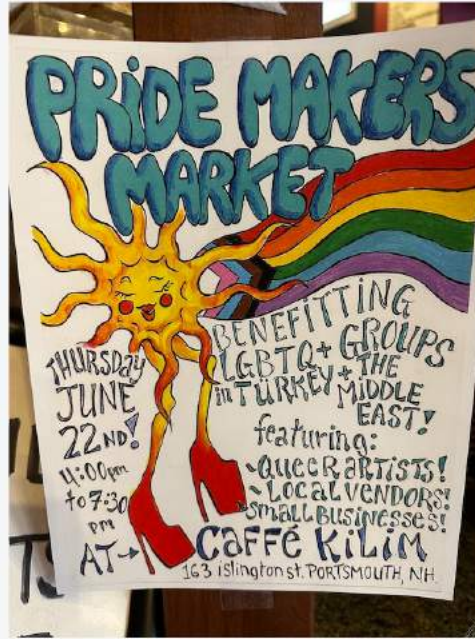 PRiDE MAKERS
MARKET
BENEFiTTiNG
LGBTQ+ GROUPS
in TURKEY + THE
MIDDLE
EAST!
THURSDAY
JUNE
22ND!
4:00pm
to 7:30
pm
featuring:
- QUEER ARTISTS!
- LOCAL VENDORS!
- SMALL BUSINESSES!
AT → CAFFÉ KiLiM
163 islington st. PORTSMOUTH, NH